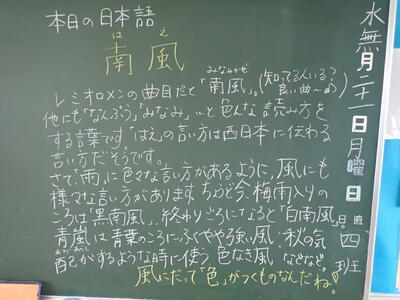 本日の日本語
は え
南風
みなみかぜ
レミオロメンの曲目だと「南風」。(知ってる人いる？良い曲〜♪)
他にも「なんぷう」「みなみ」…と色んな読み方を
する言葉です。「はえ」の言い方は西日本に伝わる
言い方だそうです。
さて、「雨」に色々な言い方があるように、風にも
様々な言い方があります。ちょうど今、梅雨入りの
ころは「黒南風」、終わりごろになると「白南風」。
青嵐は青葉のころにふくやや強い風、秋の気
配がするような時に使う色なき風、などなど。
風にだって「色」がつくものなんだね！
水無月二十一日月曜日
日直四班